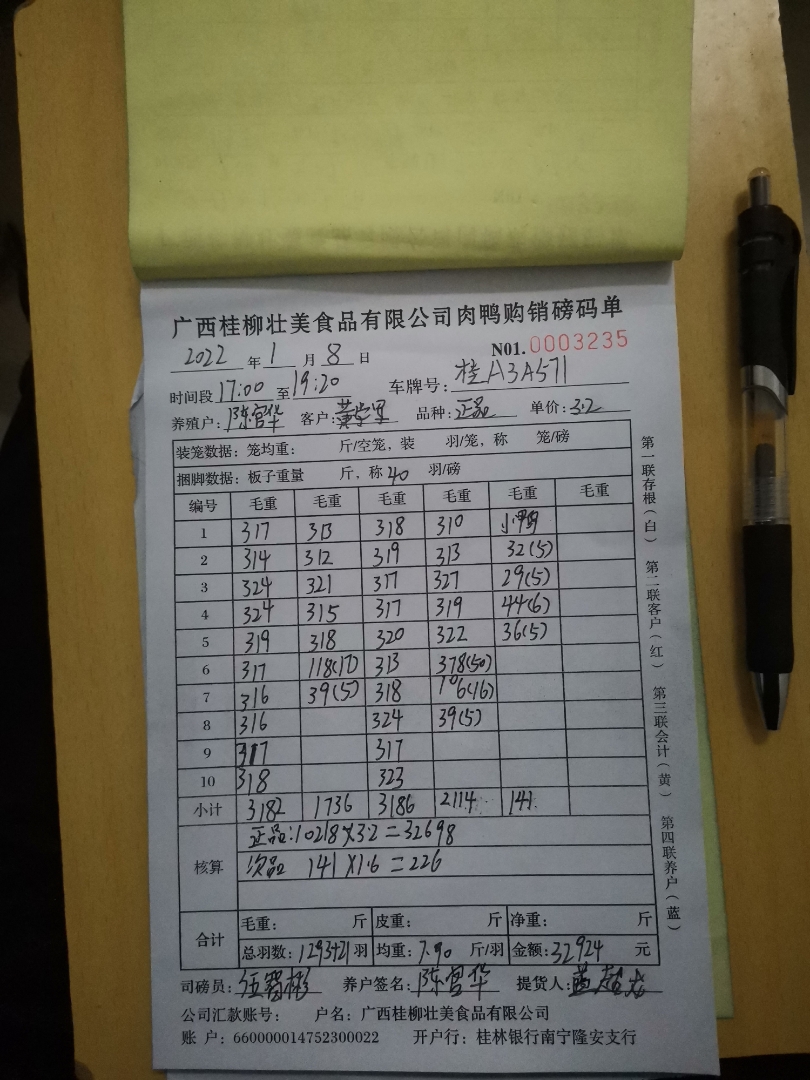 广西桂柳壮美食品有限公司肉鸭购销磅码单
2022 年 1 月 8 日 N01. 0003235
时间段 17:00 至 19:20 车牌号: 桂A3A571
养殖户: 陈宫华 客户: 品种: 正品 单价: 3.2
装笼数据: 笼均重: 斤/空笼, 装 羽/笼, 称 笼/磅
捆脚数据: 板子重量 斤, 称 40 羽/磅
编号 毛重 毛重 毛重 毛重 毛重 毛重
1 317 313 318 310 小鸭
2 314 312 319 313 32(5)
3 324 321 317 327 29(5)
4 324 315 317 319 44(6)
5 319 318 320 322 36(5)
6 317 118(17) 313 378(50)
7 316 39(5) 318 106(16)
8 316 324 39(5)
9 317 317
10 318 323
小计 3182 1736 3186 2114 141
核算 正品:10218×3.2=32698
次品 141×1.6=226
合计 毛重: 斤 皮重: 斤 净重: 斤
总羽数: 1293+21 羽 均重: 7.90 斤/羽 金额: 32924 元
司磅员: 养户签名: 陈宫华 提货人:
公司汇款账号: 户名: 广西桂柳壮美食品有限公司
账 户: 660000014752300022 开户行: 桂林银行南宁隆安支行
第一联存根(白) 第二联客户(红) 第三联会计(黄) 第四联养户(蓝)